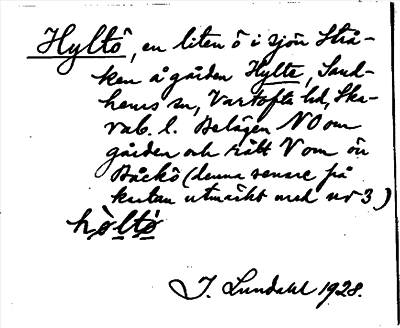 Hyltö, en liten ö i sjön Strå-
ken å gården Hylte, Sand-
hems sn, Vartofta hd, Ska-
rab. l. Belägen NO om
gården och rätt V om ön
Båckö (denna senare på
kartan utmärkt med nr 3)
hòltö
J. Lundahl 1928.